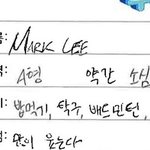 름: MARK LEE
격: A형 약간 소심
기: 밥먹기, 탁구, 배드민턴,
많이 웃는다